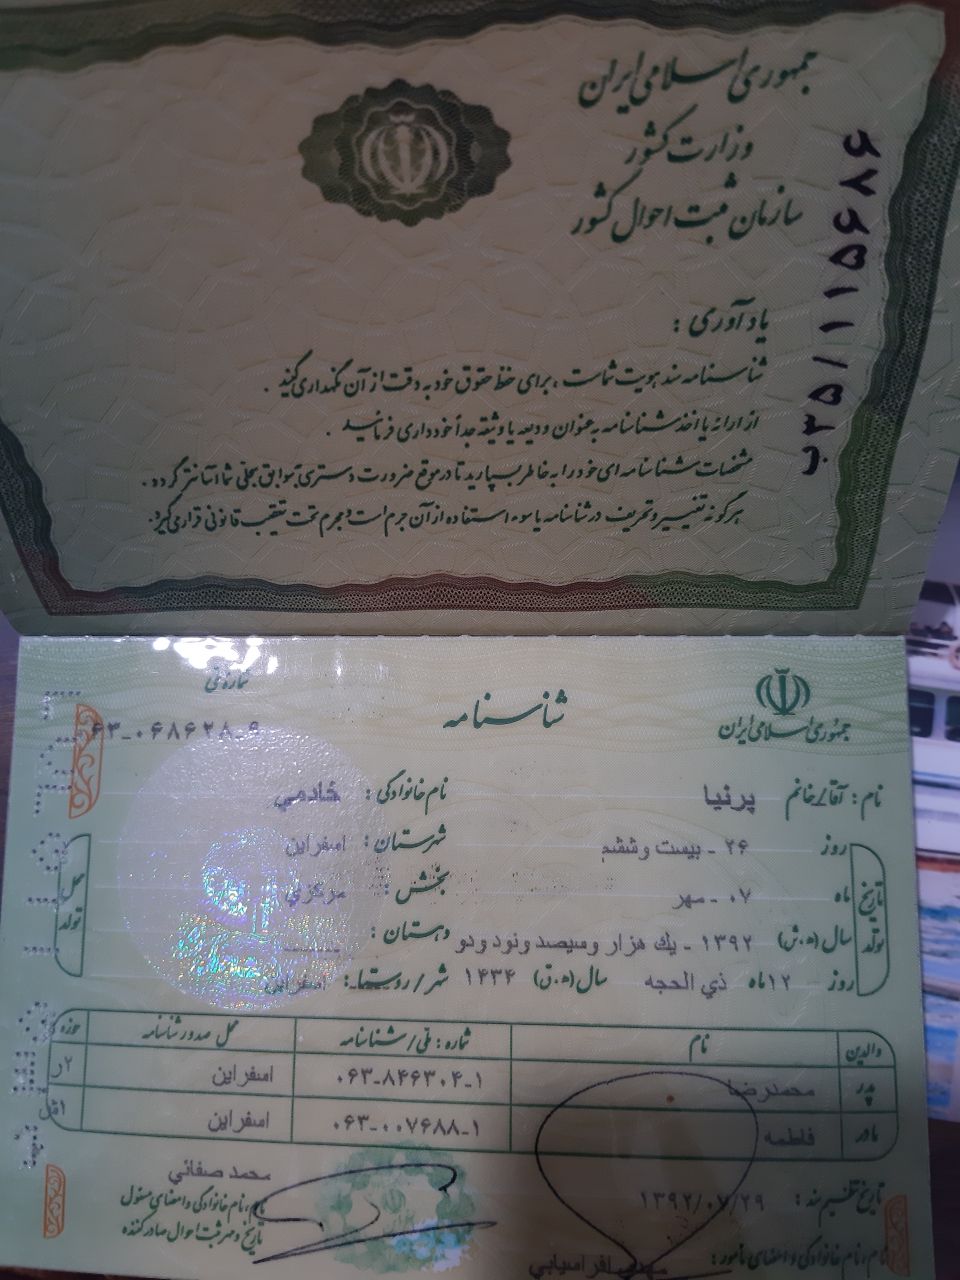 جمهوری اسلامی ایران
وزارت کشور
سازمان ثبت احوال کشور
یادآوری :
شناسنامه سند هویت شماست ، برای حفظ حقوق خود به دقت از آن نگهداری کنید .
از ارائه یا اخذ شناسنامه به عنوان ودیعه یا وثیقه جداً خودداری فرمائید .
مشخصات شناسنامه ای خود را به خاطر بسپارید تا در موقع ضرورت دسترسی به سوابق سجلی شما آسانتر گردد .
هرگونه تغییر و تحریف در شناسنامه یا سوء استفاده از آن جرم است و مجرم تحت تعقیب قانونی قرار می گیرد .
جمهوری اسلامی ایران
شناسنامه
شماره ملی
۰۶۸۶۲۸-۶
نام : آقا/خانم پرنیا نام خانوادگی : خادمي
تاریخ تولد
روز ۲۶ - بیست وششم شهرستان : اسفراین
ماه ۰۷ - مهر بخش : مرکزي
سال (ه.ش) ۱۳۹۲ - یك هزار وسیصد ونود ودو دهستان :
روز ۱۲ماه ذي الحجه سال (ه.ق) ۱۴۳۴ شهر/روستا : اسفراین
محل تولد
والدین نام شماره : ملی/شناسنامه محل صدور شناسنامه حوزه
پدر محمدرضا ۰۶۳-۸۴۶۳۰۴-۱ اسفراین ۲ر
مادر فاطمه ۰۶۳-۰۰۷۶۸۸-۱ اسفراین
تاریخ تنظیم سند : ۱۳۹۲/۰۷/۲۹
محمد صفائي
نام، نام خانوادگی و امضای مسئول
تاریخ و مهر ثبت احوال صادرکننده
نام، نام خانوادگی و امضای مأمور : مهدي افراسیابي